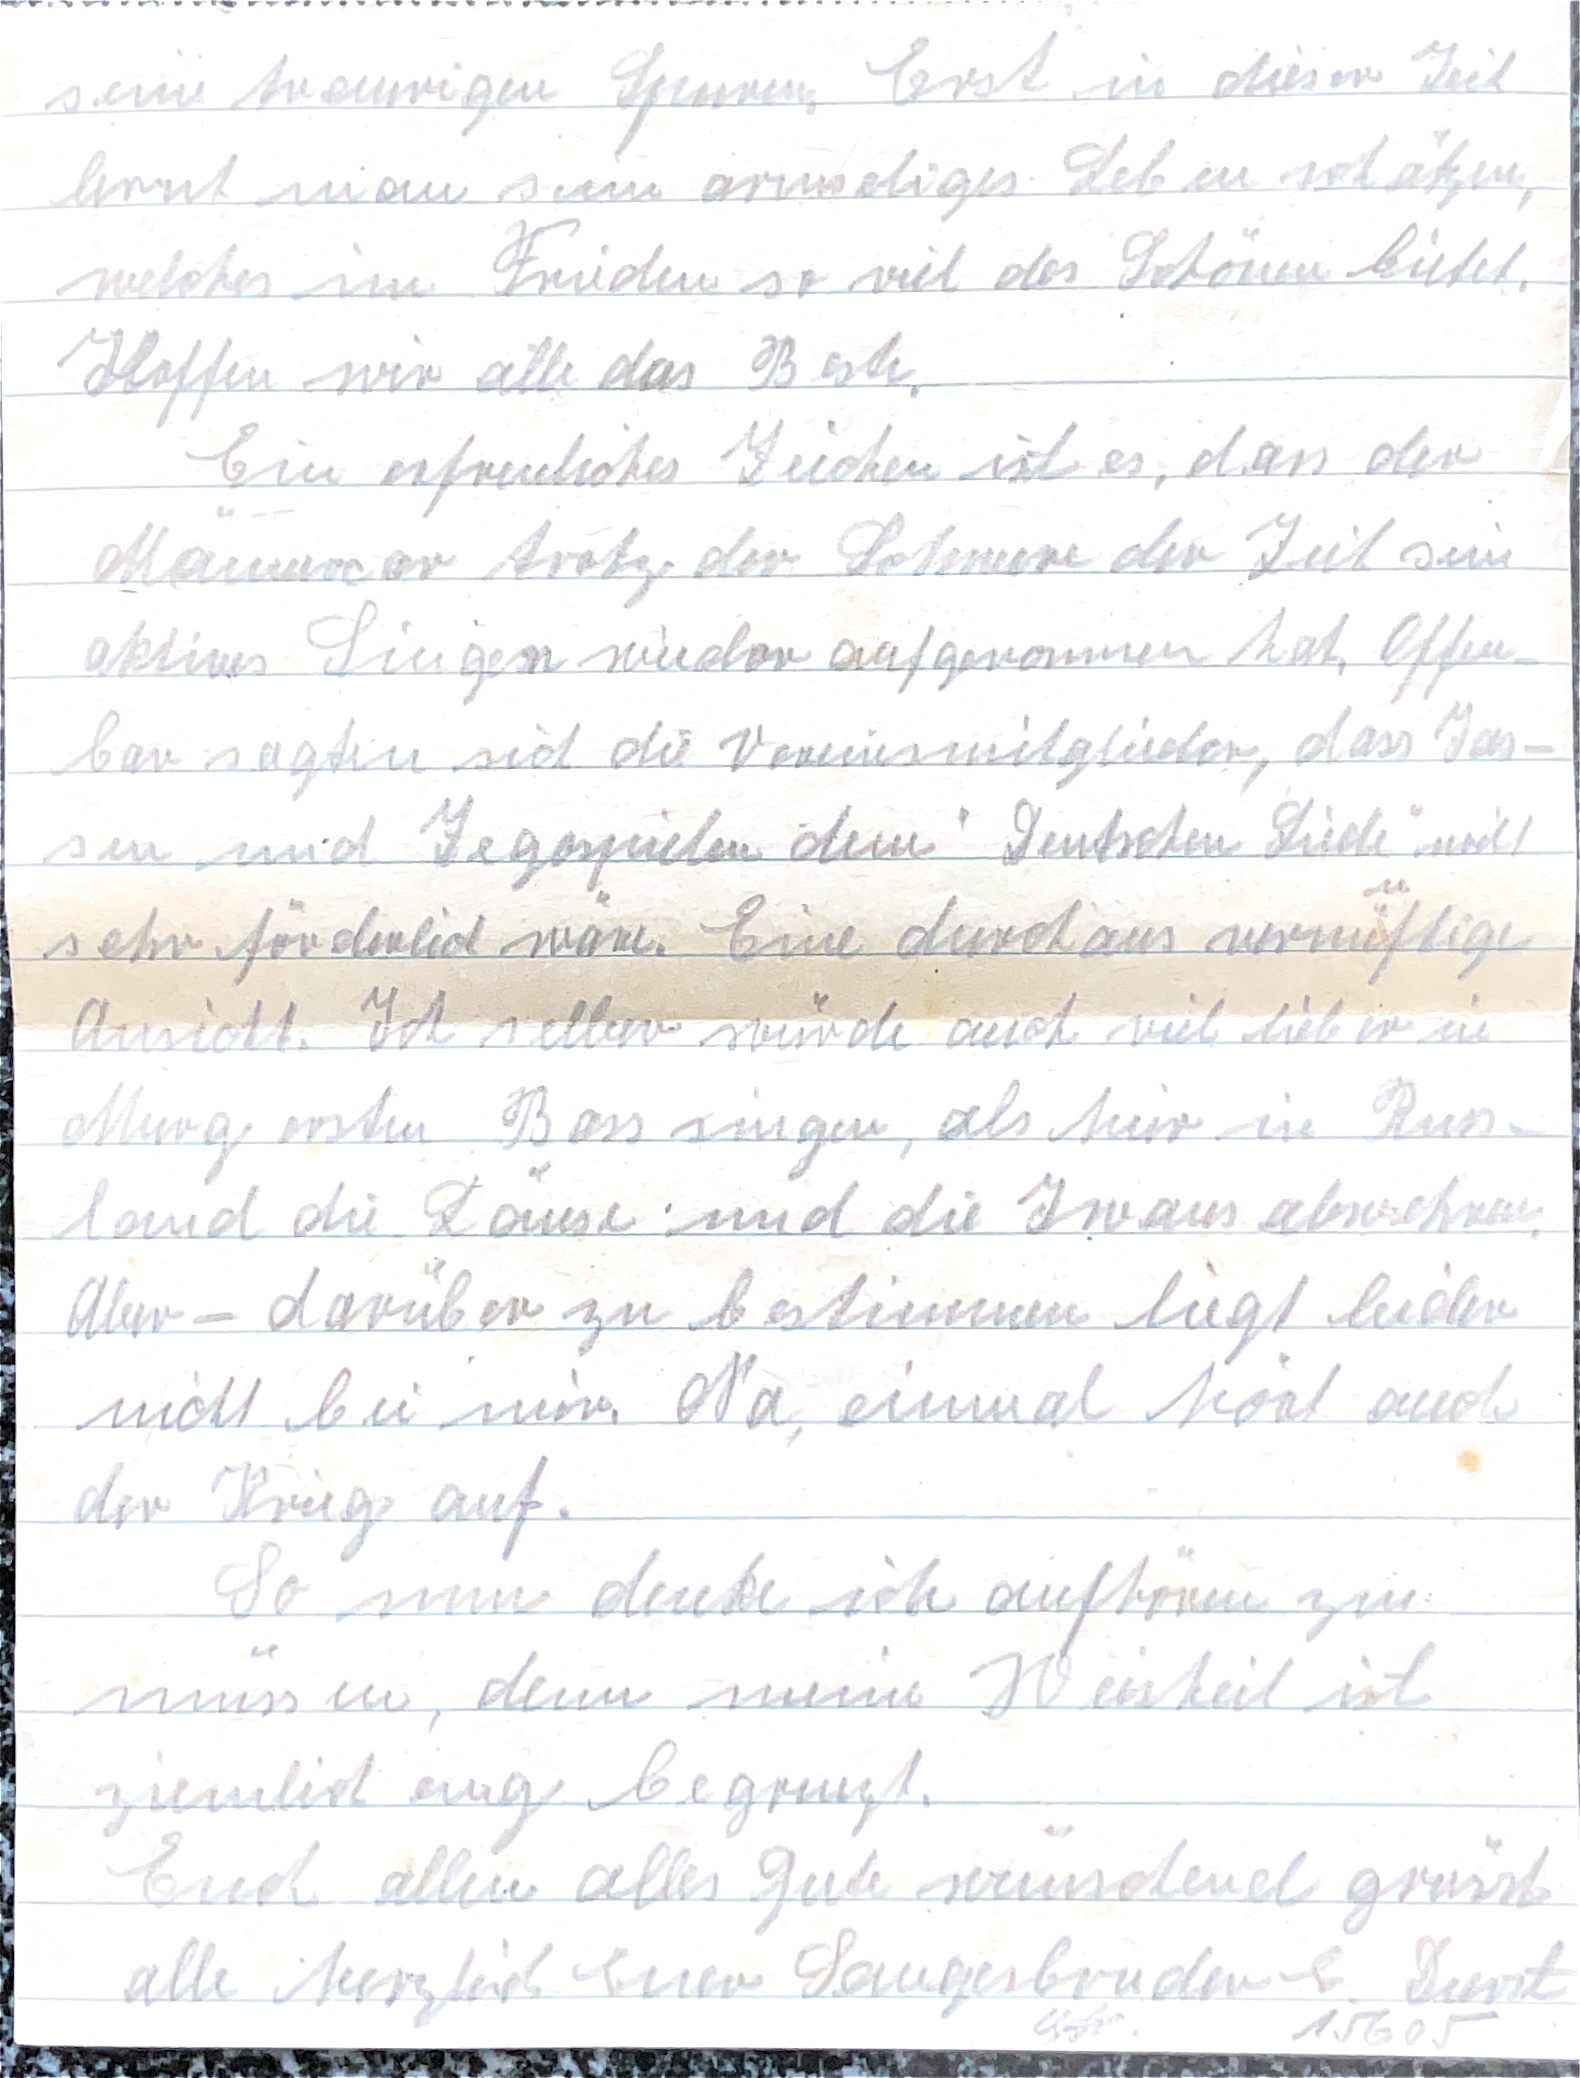 seine traurigen Spuren. Erst in dieser Zeit
lernt man sein armseliges Leben schätzen,
welches im Frieden so viel des Schönen bietet.
Hoffen wir alle das Beste.
Ein erfreuliches Zeichen ist es, dass der
Männerchor trotz der Schwere der Zeit sein
aktives Singen wieder aufgenommen hat. Offen-
bar sagten sich die Vereinsmitglieder, dass Jas-
sen und Zegospielen dem "Deutschen Liede" nicht
sehr förderlich wäre. Eine durchaus vernüftige
Ansicht. Ich selber würde auch viel lieber in
Murg ersten Bass singen, als hier in Russ-
land die Läuse und die Iwans abwehren.
Aber – darüber zu bestimmen liegt leider
nicht bei mir. Na, einmal hört auch
der Krieg auf.
So nun denke ich aufhören zu
müssen, denn meine Weisheit ist
ziemlich eng begrenzt.
Euch allen alles Gute wünschend grüsst
alle herzlich Euer Sangesbruder E. Durst
15605